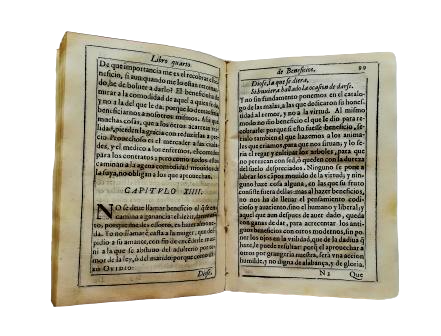 Libro quarto
De que importancia me es el recobrar el be
neficio, si aun quando me lo están retornan
do, he de boluer a darlo? El beneficio ha de
mirar a la comodidad de aquel a quien se da,
y no a la del que le da, porque lo demas es
beneficiarnos a nosotros mismos. Assi que
muchas cosas, que a los otros acarrean vti
lidad, pierden la gracia con reduzirlas a pre
cio. Prouechoso es el mercader a las ciuda
des, y el medico a los enfermos, el
para los contratos; pero como todos ellos
caminan a la agena comodidad mirando a
la suya, no obligan a los que aprouechan.
CAPITVLO XIIII.
NO se deue llamar beneficio al que se en
camina a ganancia:
porque me es esforço, es hazer almo
neda. Yo no llamaré casta a la muger, que des
pidio a su amante, con fin de encenderle mas:
ni a la que se abstuuo del adulterio por te
mor de la ley, ò del marido: porque como di
xo OVIDIO:
Diose,
de Beneficios. 99
Diose, la que se diera,
Si huuiera hallado la ocasion de darse.
Y no sin fundamento ponemos en el catalo
go de las malas, a las que dedicaron su hones
tidad al temor, y no a la virtud. Al mismo
modo no dio beneficio el que le dio para re
cobrarle: porque si esto fuesse beneficio, se
rialo tambien el que hazemos a los anima
les que criamos, para que nos siruan, y lo se
ria el regar y cultibar los arboles, para que
no perezcan con sed, ò queden con la dureza
del suelo despreciados. Ninguno se pone a
labrar los campos mouido de la virtud; y nin
guno haze cosa alguna, en las que su fruto
consiste fuera dellas: mas al hazer beneficio,
no nos ha de lleuar el pensamiento codi
cioso y auariento, sino el humano y liberal, y
aquel que aun despues de auer dado, queda
con ganas de dar, para acrecentar los anti
guos beneficios con otros modernos, sin po
ner los ojos en la vtilidad, que de la dadiua q̃
haze, le puede resultar: porq̃ el aprouechar a
otros por grangeria nuestra, serà vna accion
humilde, y no digna de alabança, y de gloria.
N 3 Que